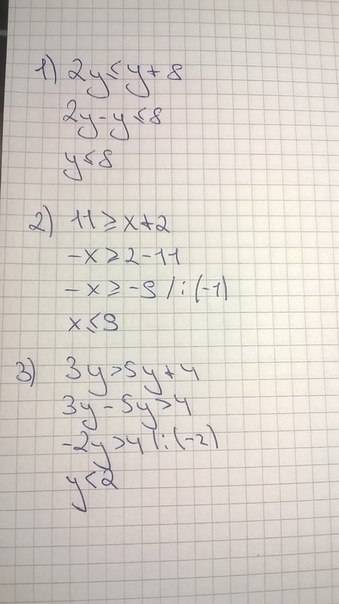 1) 2y ≤ y + 8
2y - y ≤ 8
y ≤ 8
2) 11 ≥ x + 2
-x ≥ 2 - 11
-x ≥ -9 / : (-1)
x ≤ 9
3) 3y > 5y + 4
3y - 5y > 4
-2y > 4 | : (-2)
y < 2